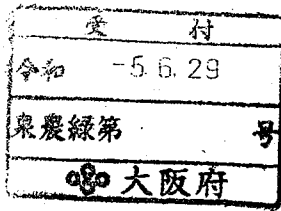 受 付
令和 -5.6.29
泉農緑第 号
大阪府